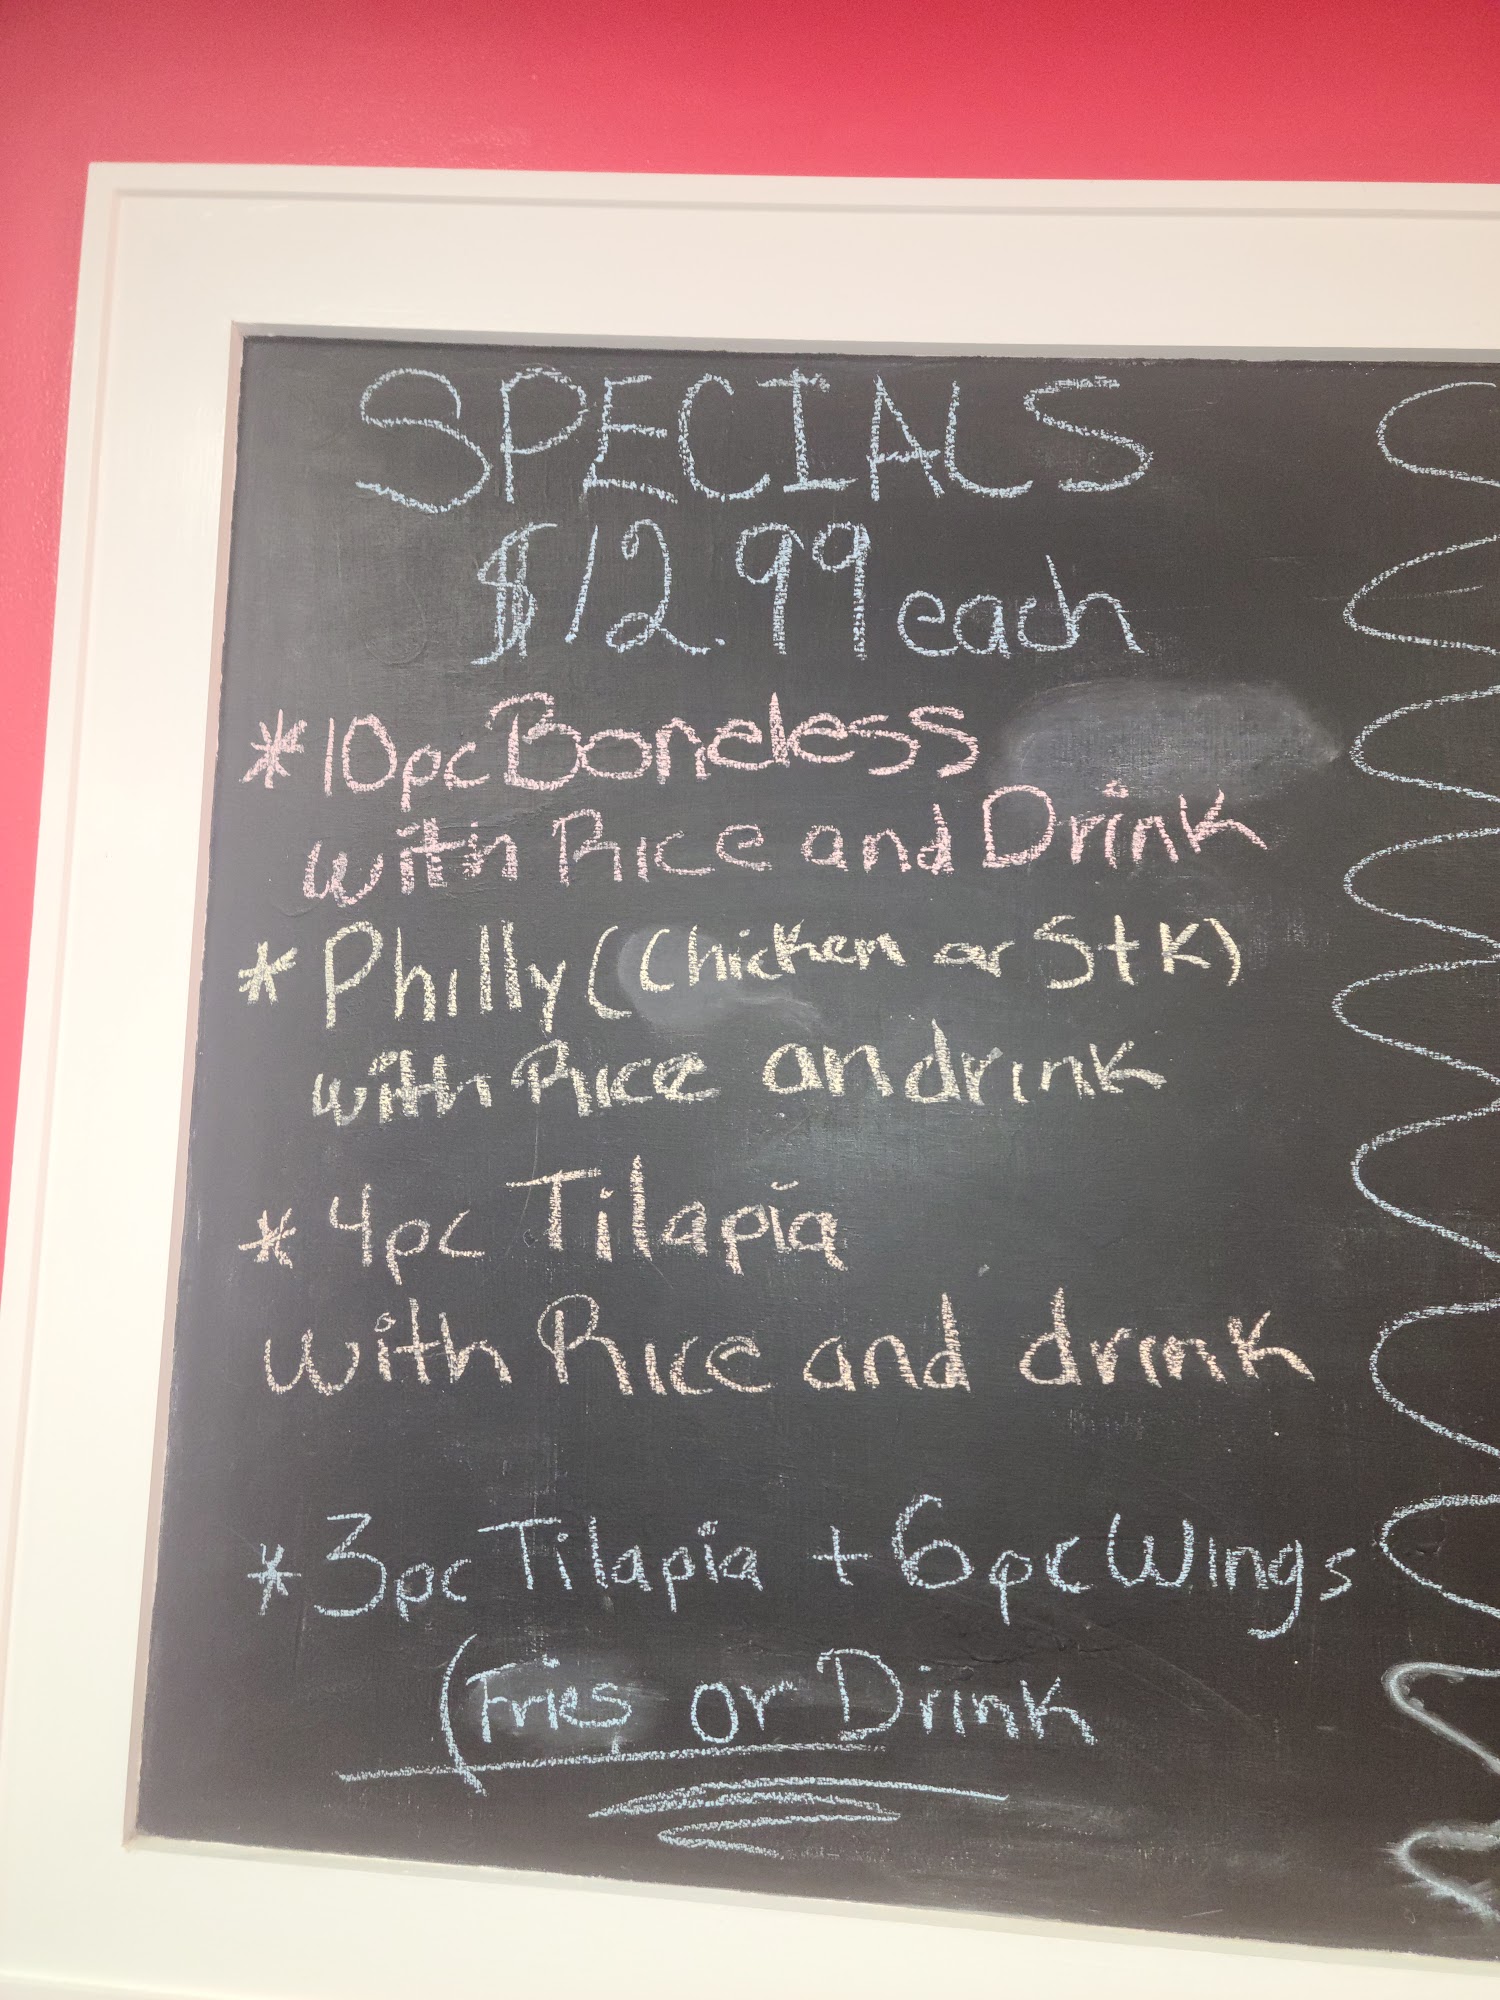 SPECIALS
$12.99 each
*10pc Boneless
with Rice and Drink
* Philly (Chicken or Stk)
with Rice an drink
* 4pc Tilapia
with Rice and drink
* 3pc Tilapia + 6pc Wings
(Fries or Drink